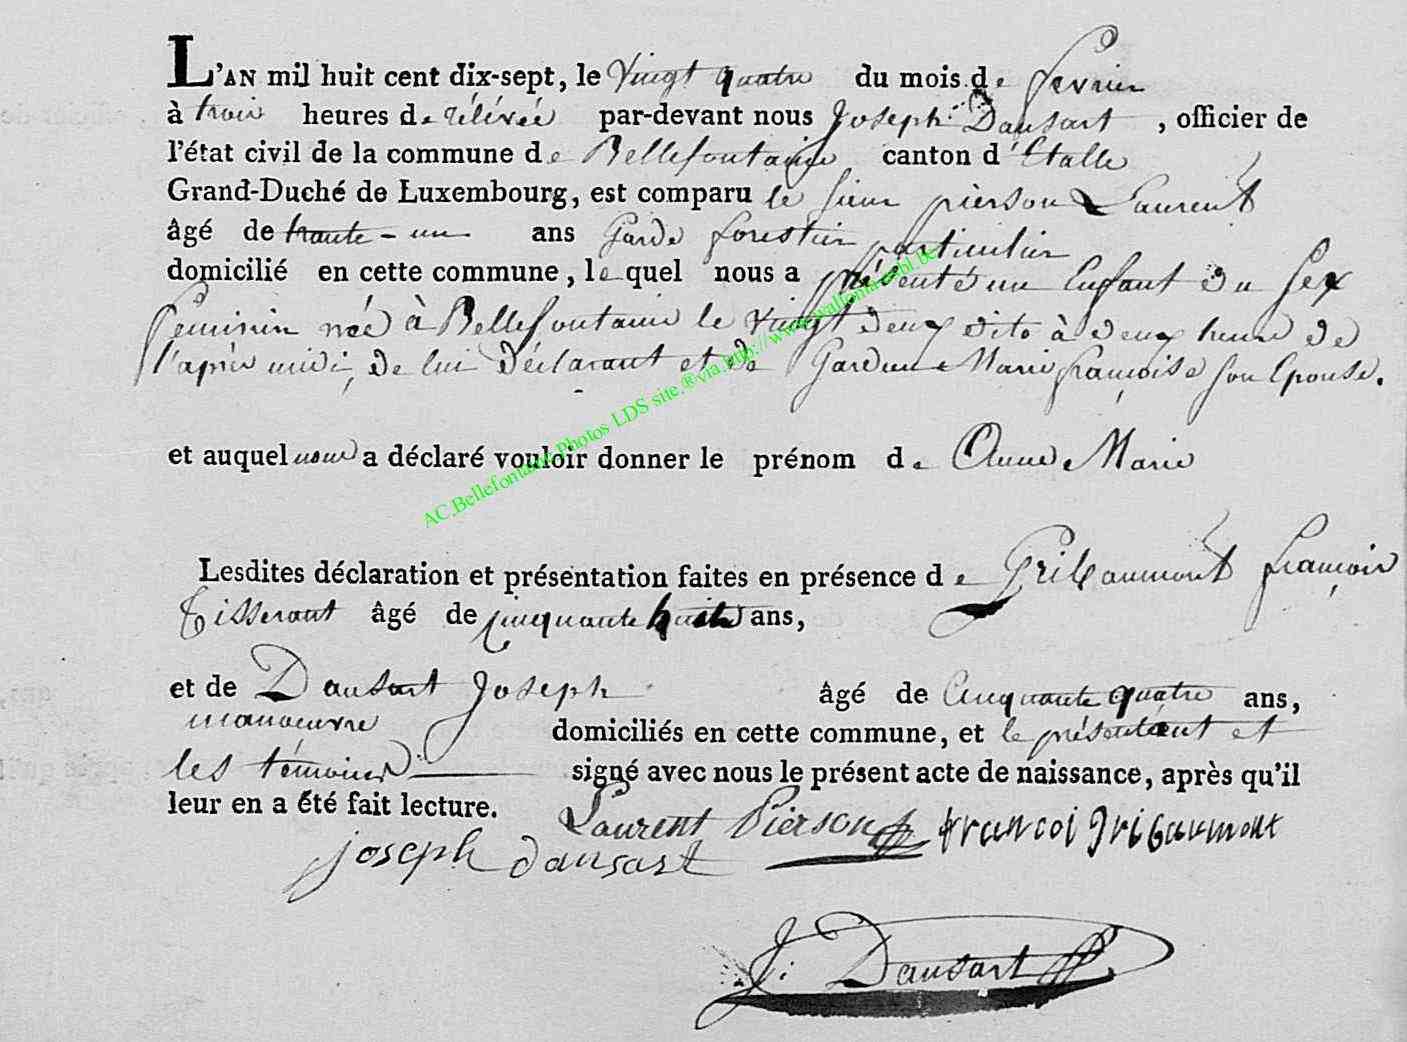 L'AN mil huit cent dix-sept, le Vingt quatre du mois de fevrier
à trois heures de rélévée par-devant nous Joseph Dansart, officier de
l'état civil de la commune de Bellefontaine canton d'Etalle
Grand-Duché de Luxembourg, est comparu le sieur pierson Laurent
âgé de trante-un ans Garde forestier particulier
domicilié en cette commune, lequel nous a présenté un Enfant du sex
feminin née à Bellefontaine le vingt deux dito à deux heure de
l'après midi, de lui déclarant et de Marie françoise son Epouse.
et auquel nous a déclaré vouloir donner le prénom de Anne Marie
Lesdites déclaration et présentation faites en présence de Gribaumont françois
Tisserant âgé de cinquante huit ans,
et de Dansart Joseph âgé de Cinquante quatre ans,
manoeuvre domiciliés en cette commune, et le présentant et
les témoins signé avec nous le présent acte de naissance, après qu'il
leur en a été fait lecture. Laurent Pierson francoi gribaumont
joseph dansart
J: Dansart
AC.Bellefontaine Photos LDS site.®via.http://www.